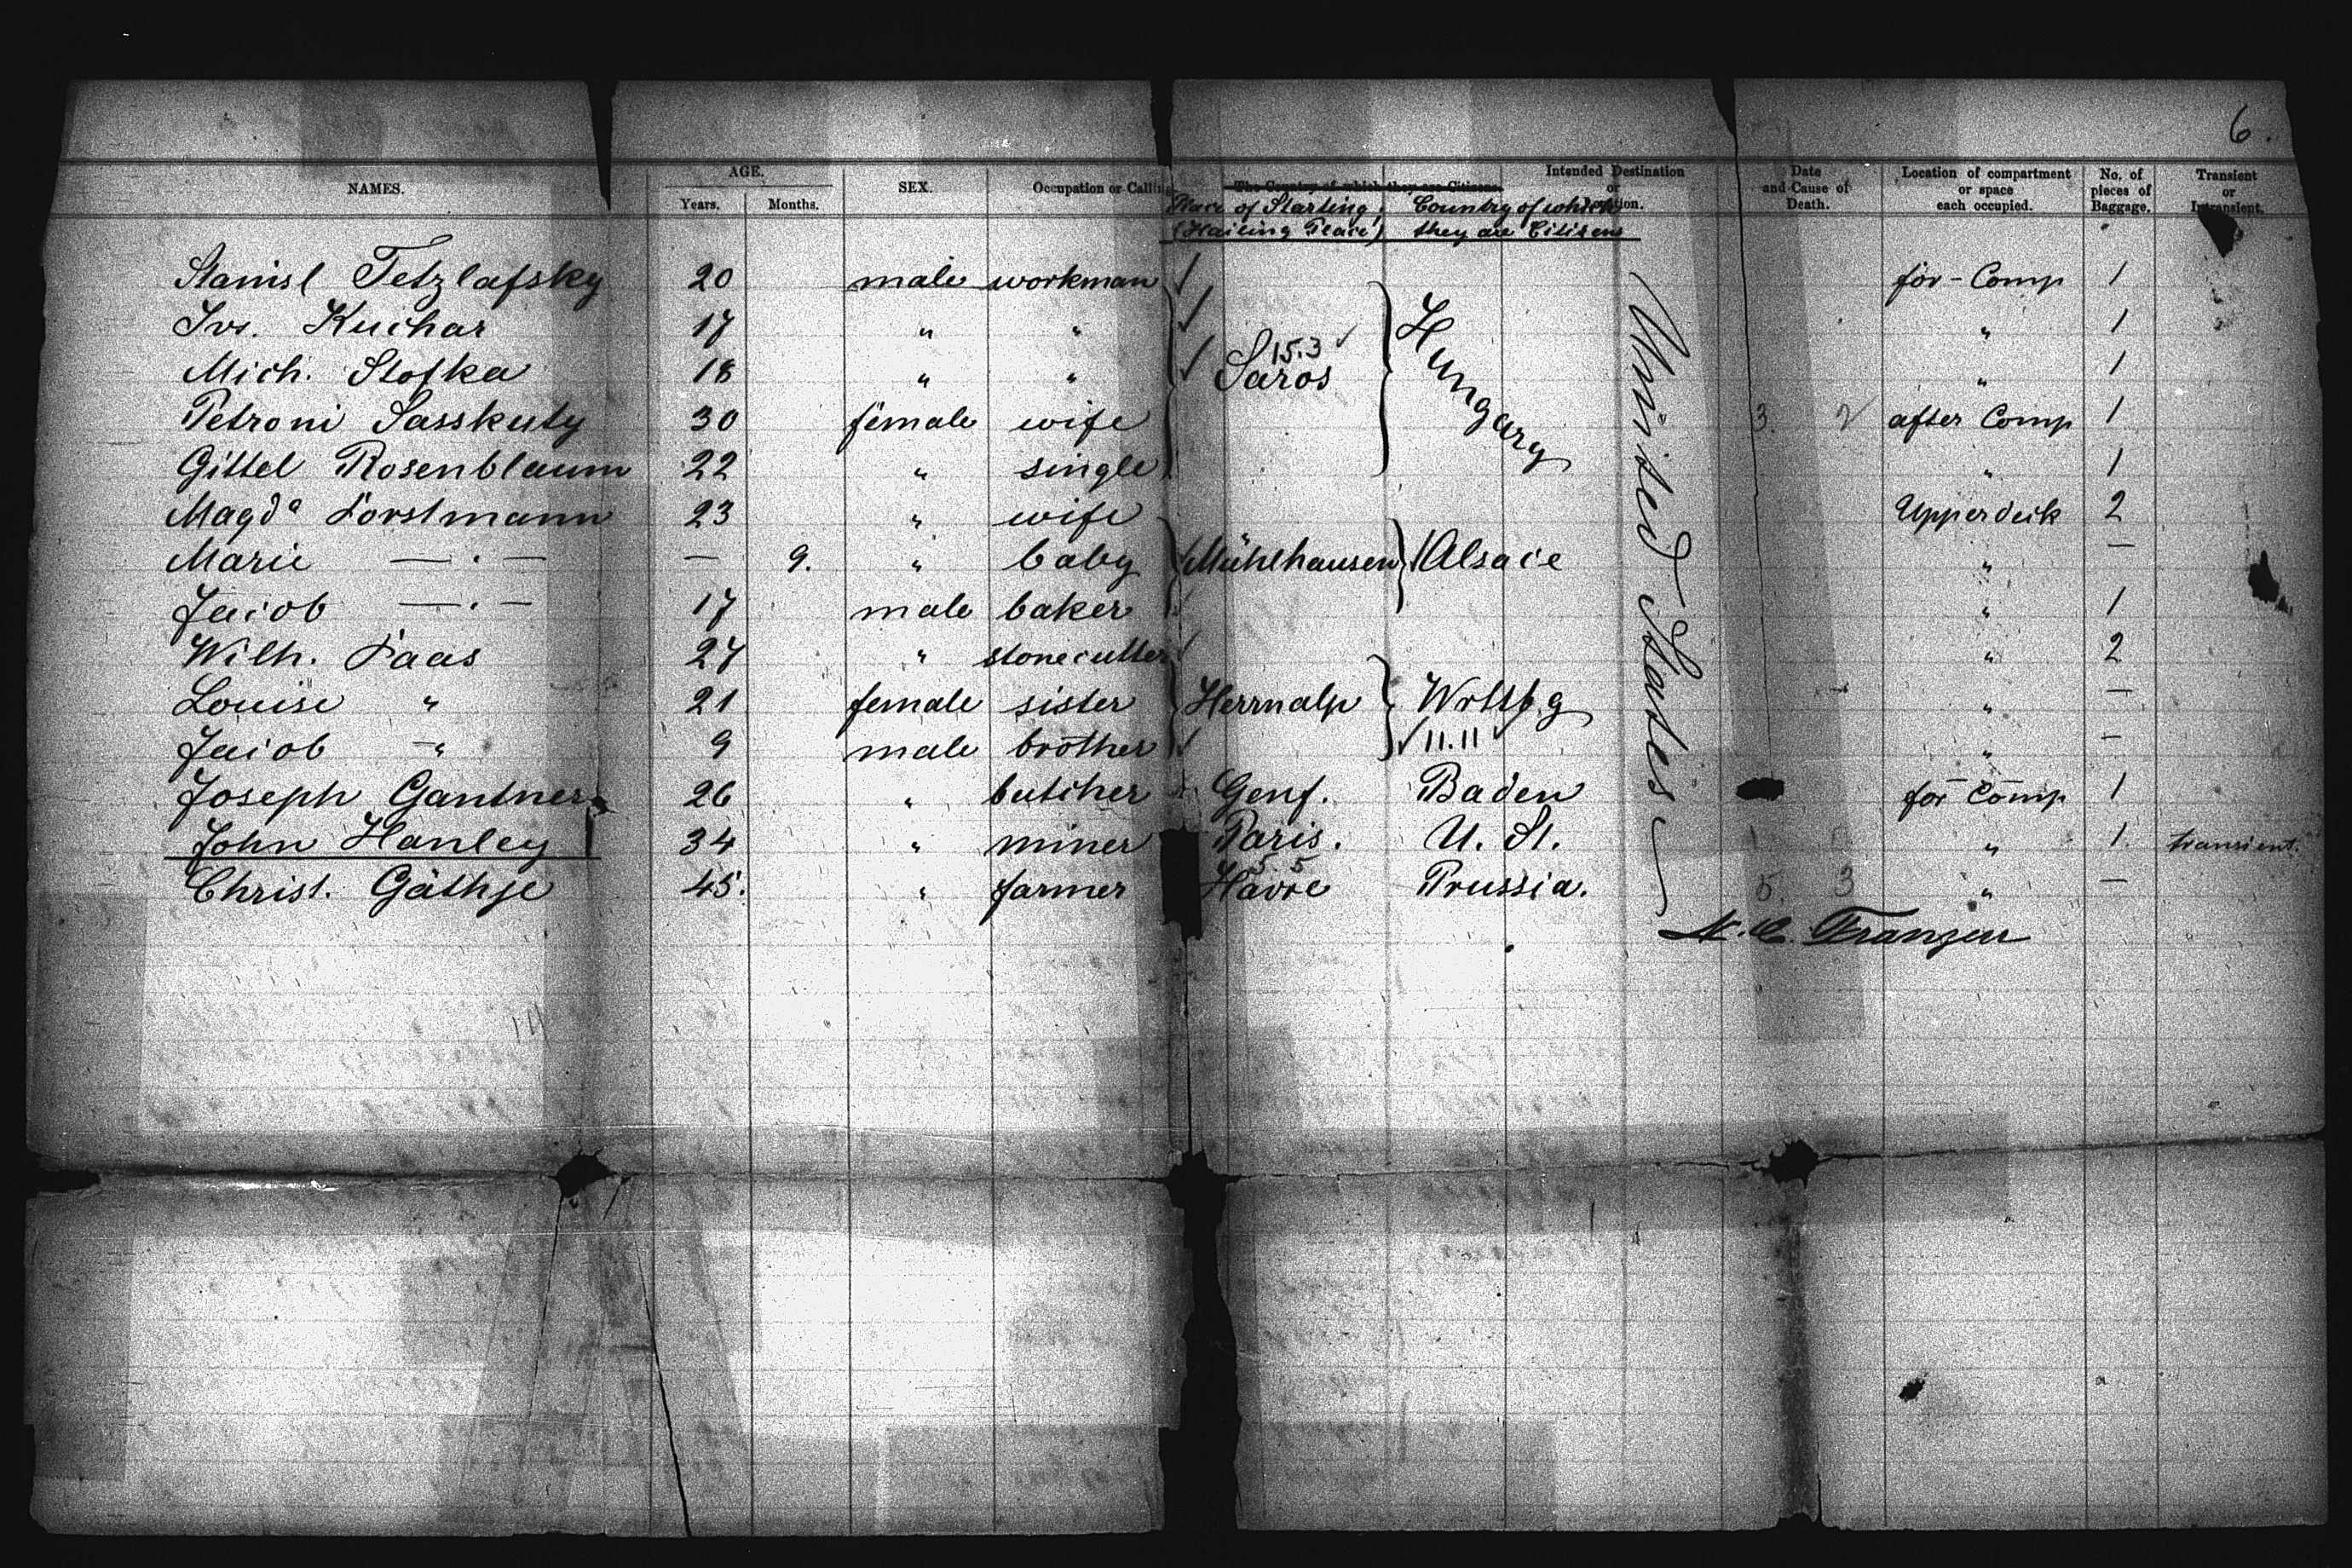 6.
NAMES. AGE. Years. Months. SEX. Occupation or Calling The Country of which they are Citizens. Intended Destination or Date and Cause of Death. Location of compartment or space each occupied. No. of pieces of Baggage. Transient or Intransient.
Place of Starting; (Hailing Place) Country of which they are Citizens
Stanisl Tetzlafsky 20 male workman ✓ for-Comp 1
Jos. Kuchar 17 " " ✓ " 1
Mich. Stofka 18 " " ✓ 15.3 ✓ Saros Hungary United States " 1
Petroni Sasskuty 30 female wife 3. 2 after Comp 1
Gittel Rosenblaum 22 " single " 1
Magda Horstmann 23 " wife Upperdeck 2
Marie —"— — 9. " baby Mühlhausen Alsace " —
Jacob —"— 17 male baker ✓ " 1
Wilh. Haas 27 " stonecutter ✓ " 2
Louise " 21 female sister Herrnalp Wrttbg " —
Jacob " 9 male brother ✓ ✓ 11.11 ✓ " —
Joseph Gantner 26 " butcher Genf. Baden for Comp 1
John Hanley 34 " miner Paris. U. St. " 1. transient.
Christ. Gäthje 45. " farmer 5 5 Havre Prussia. 5. 3 " —
Franzen
14